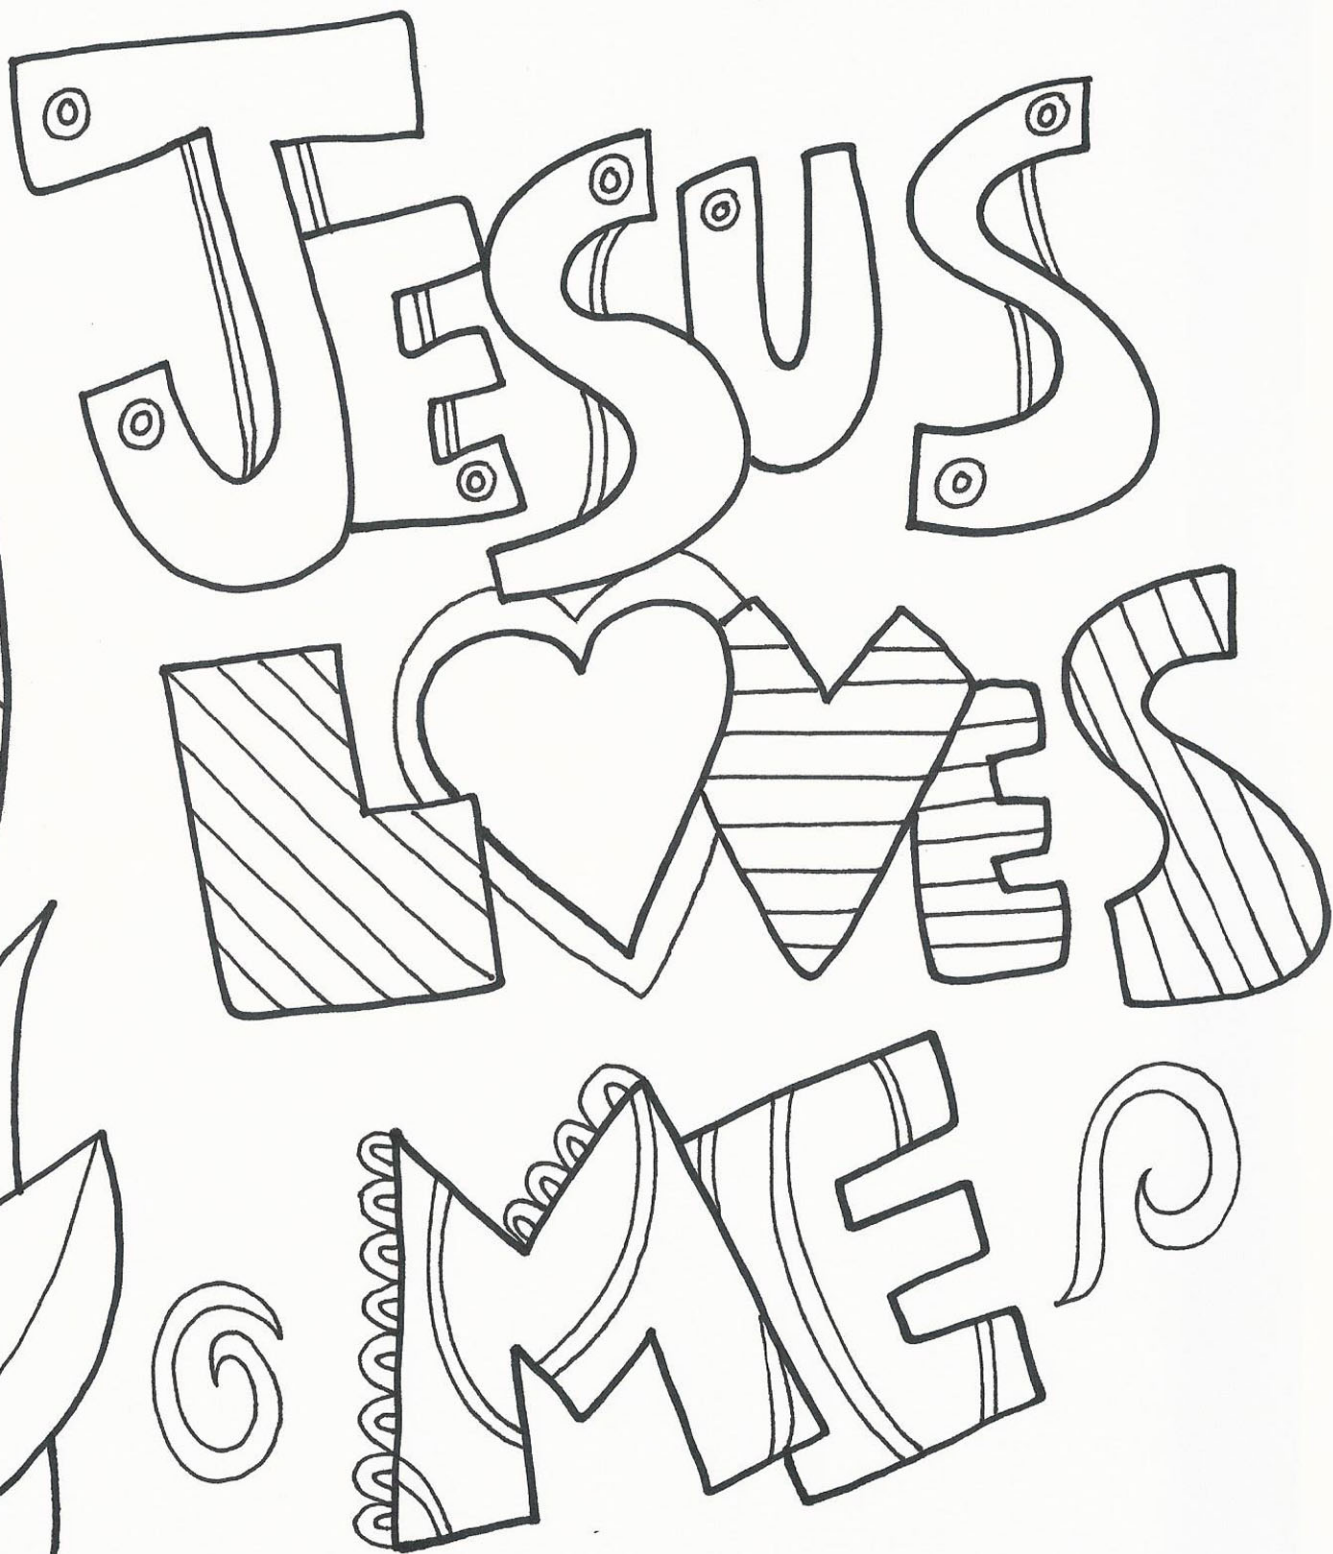 JESUS
LOVES
ME